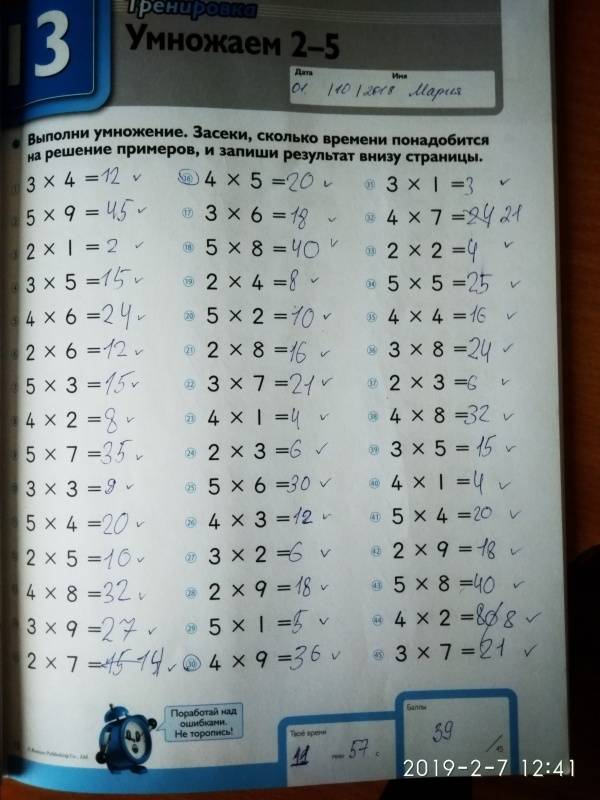 3
Тренировка
Умножаем 2–5
Дата Имя
01 /10/2018 Мария
Выполни умножение. Засеки, сколько времени понадобится
на решение примеров, и запиши результат внизу страницы.
3 × 4 =12 ✓
5 × 9 =45 ✓
2 × 1 =2 ✓
3 × 5 =15 ✓
4 × 6 =24 ✓
2 × 6 =12 ✓
5 × 3 =15 ✓
4 × 2 =8 ✓
5 × 7 =35 ✓
3 × 3 =9 ✓
5 × 4 =20 ✓
2 × 5 =10 ✓
4 × 8 =32 ✓
3 × 9 =27 ✓
2 × 7 =15 14 ✓
16 4 × 5 =20 ✓
17 3 × 6 =18 ✓
18 5 × 8 =40 ✓
19 2 × 4 =8 ✓
20 5 × 2 =10 ✓
21 2 × 8 =16 ✓
22 3 × 7 =21 ✓
23 4 × 1 =4 ✓
24 2 × 3 =6 ✓
25 5 × 6 =30 ✓
26 4 × 3 =12 ✓
27 3 × 2 =6 ✓
28 2 × 9 =18 ✓
29 5 × 1 =5 ✓
30 4 × 9 =36 ✓
31 3 × 1 =3 ✓
32 4 × 7 =24 21
33 2 × 2 =4 ✓
34 5 × 5 =25 ✓
35 4 × 4 =16 ✓
36 3 × 8 =24 ✓
37 2 × 3 =6 ✓
38 4 × 8 =32 ✓
39 3 × 5 =15 ✓
40 4 × 1 =4 ✓
41 5 × 4 =20 ✓
42 2 × 9 =18 ✓
43 5 × 8 =40 ✓
44 4 × 2 =8 ✓
45 3 × 7 =21 ✓
Поработай над
ошибками.
Не торопись!
Твоё время
11 мин 57 с
Баллы
39 /45
2019-2-7 12:41